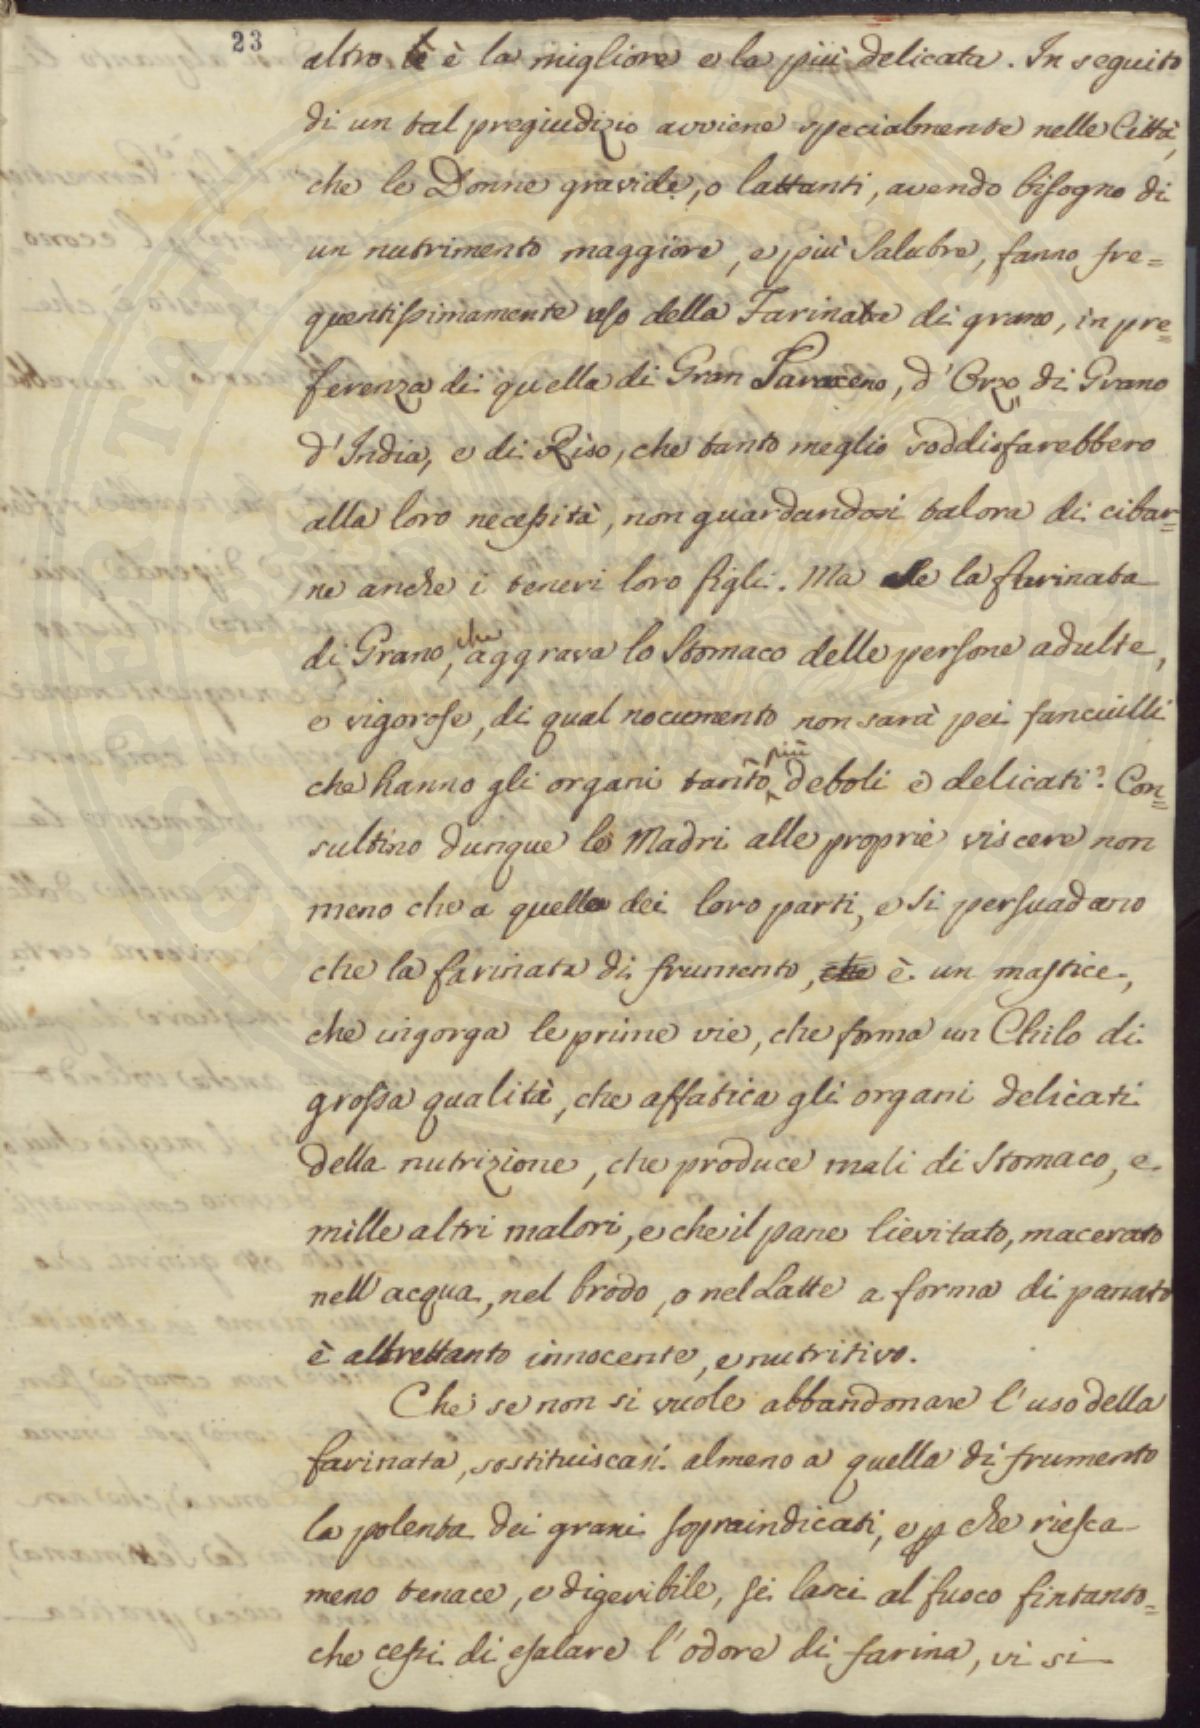 23
altro lè è la migliore e la più delicata. In seguito
di un tal pregiudizio avviene specialmente nelle Città,
che le Donne gravide, o lattanti, avendo bisogno di
un nutrimento maggiore, e più Salubre, fanno fre=
quentissimamente uso della Farinata di grano, in pre=
ferenza di quella di Gran Saraceno, d'Orzo, di Grano
d'India, e di Riso, che tanto meglio soddisfarebbero
alla loro necessità, non guardandosi talora di cibar=
ne anche i teneri loro figli. Ma se la farinata
di Grano, che aggrava lo Stomaco delle persone adulte,
e vigorose, di qual nocumento non sarà pei fanciulli
che hanno gli organi tanto più deboli e delicati? Con=
sultino dunque le Madri alle proprie viscere non
meno che a quelle dei loro parti, e si persuadano
che la farinata di frumento, che è un mastice,
che ingorga le prime vie, che forma un Chilo di
grossa qualità, che affatica gli organi delicati
della nutrizione, che produce mali di Stomaco, e
mille altri malori, e che il pane lievitato, macerato
nell'acqua, nel brodo, o nel Latte a forma di panata
è altrettanto innocente, e nutritivo.
Che se non si vuole abbandonare l'uso della
farinata, sostituiscasi almeno a quella di frumento
la polenta dei grani sopraindicati, e p che riesca
meno tenace, e digeribile, si lasci al fuoco fintanto=
che cessi di esalare l'odore di farina, vi si